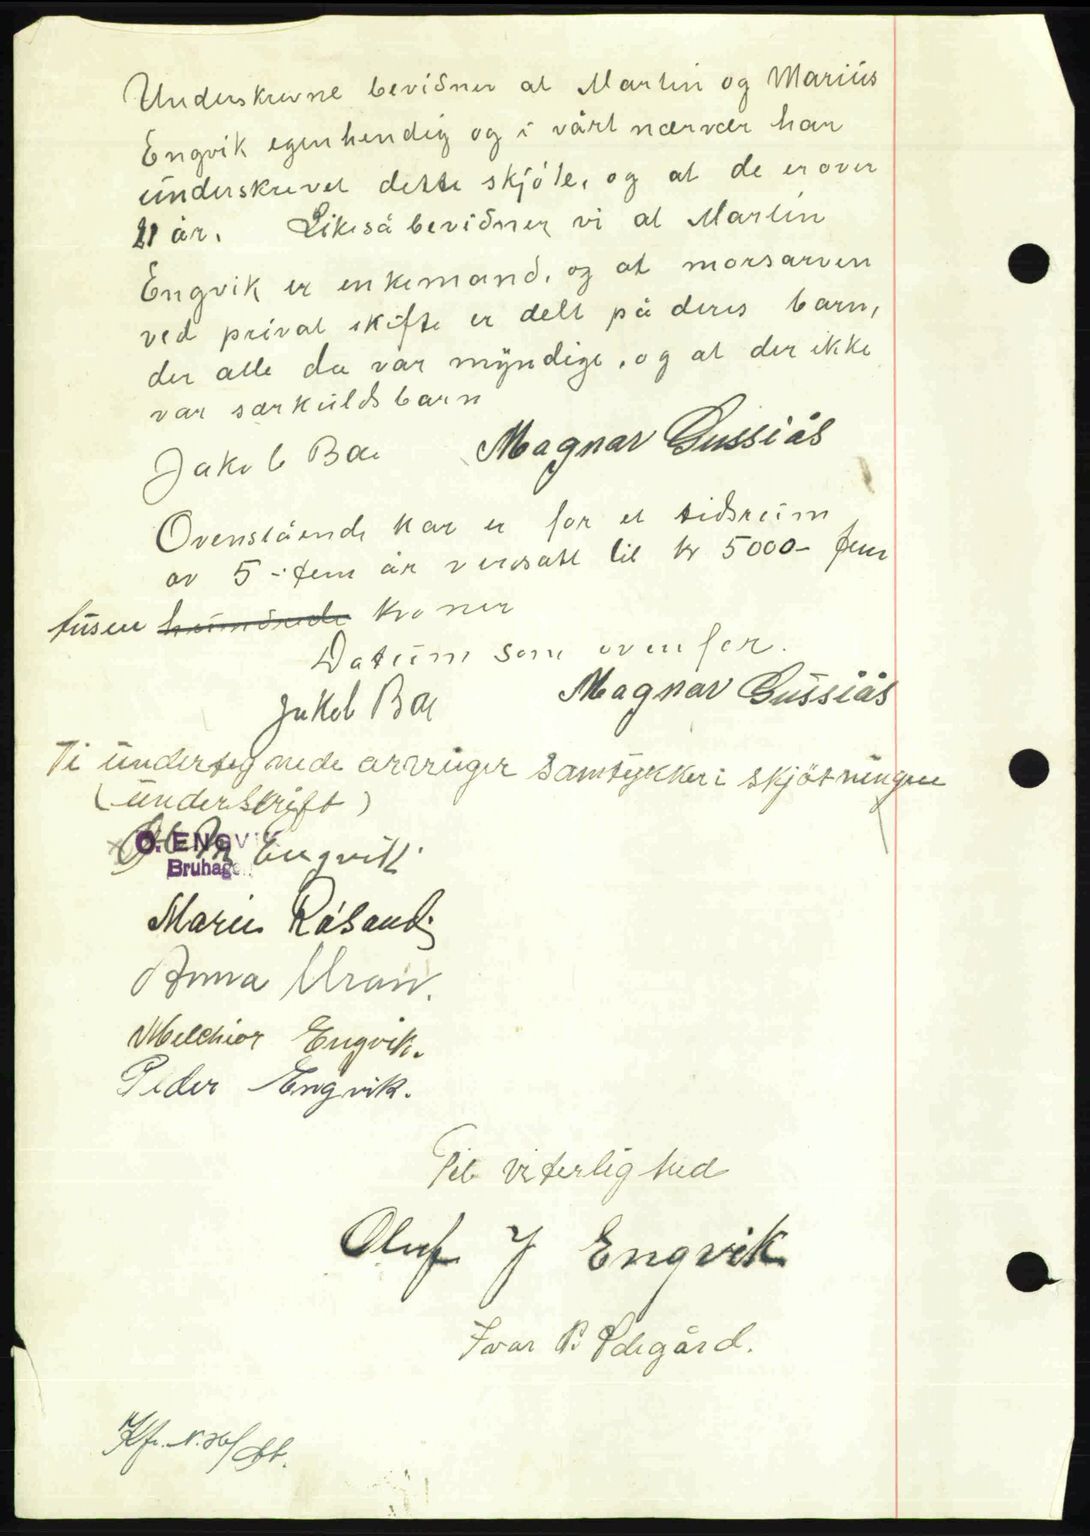 Underskrevne bevidner at Martin og Marius
Engvik egenhendig og i vårt nærvær har
underskrevet dette skjöte, og at de er over
21 år. Likeså bevidner vi at Martin
Engvik er enkemand, og at morsarven
ved privat skifte er delt på deres barn,
der alle da var myndige, og at der ikke
var særkuldsbarn
Jakob Bae Magnar Gussiås
Ovenstående kår er for et tidsrum
av 5 - fem år verdsatt til kr 5000- fem
tusen hundrede kroner
Datum som ovenfor.
Jakob Bae Magnar Gussiås
Vi undertegnede arvinger samtykker i skjötningen
(underskrift)
O. ENGVIK
Bruhagen
Engvik
Marie Råsand
Anna Uran.
Melchior Engvik.
Peder Engvik.
Til viterlighed
Oluf J Engvik
Ivar P. Ödegård.